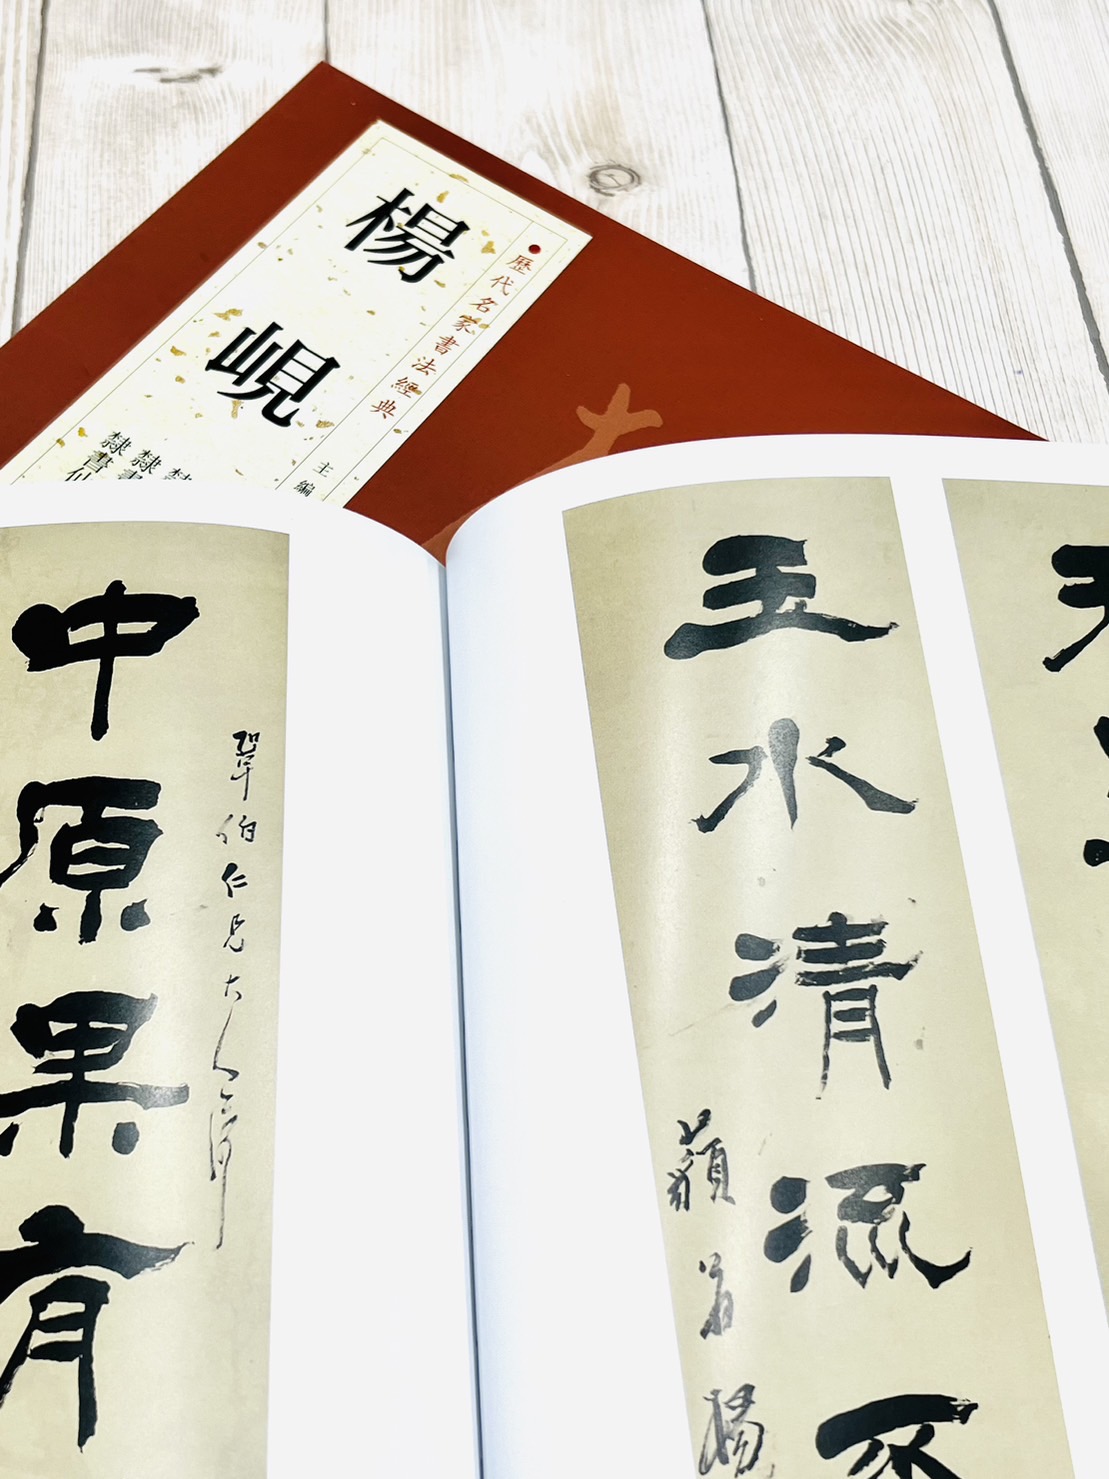 楊峴
歷代名家書法經典
主編
隸書仙
隸書
中原果有
伯仁兄大人
玉水清流不
藐翁楊